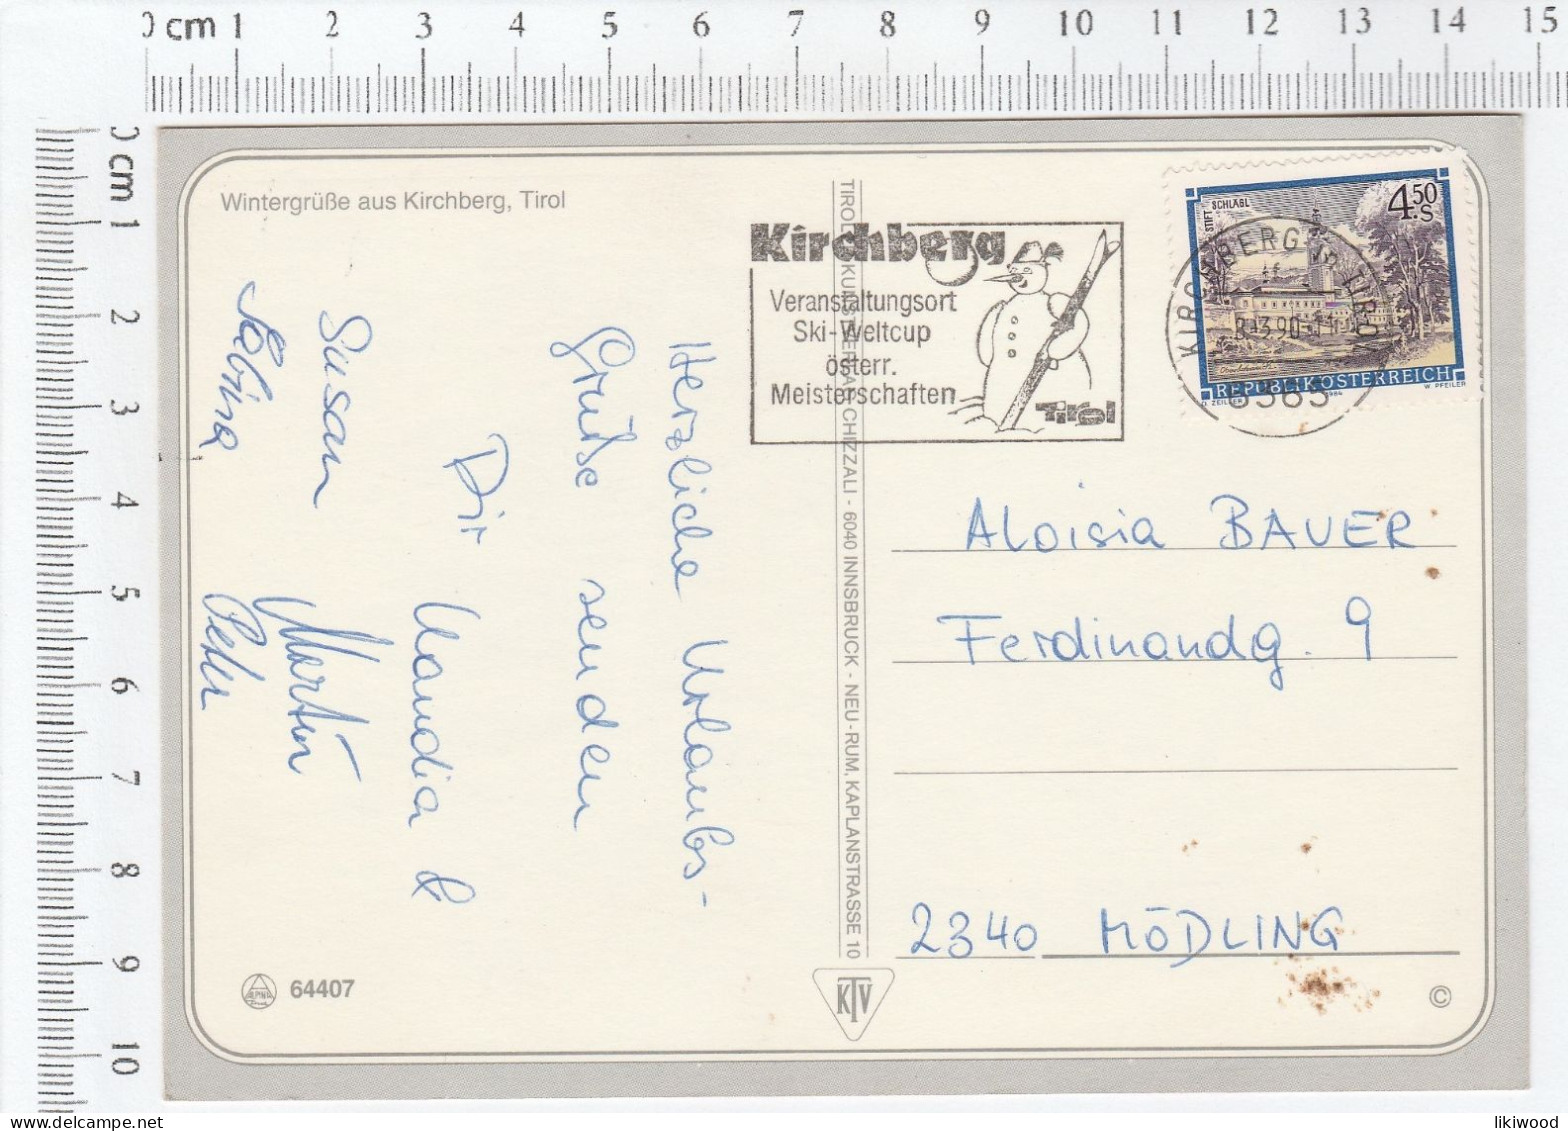 0 cm 1 2 3 4 5 6 7 8 9 10 11 12 13 14 15
0 cm 1 2 3 4 5 6 7 8 9 10
Wintergrüße aus Kirchberg, Tirol
Herzliche Urlaubs-
Grüße senden
Dir Claudia &
Susan Martin
Sabina Peter
64407
KUNSTVERLAG CHIZZALI - 6040 INNSBRUCK - NEU-RUM, KAPLANSTRASSE 10
KTV
Kirchberg
Veranstaltungsort
Ski-Weltcup
österr.
Meisterschaften
Tirol
STIFT SCHLÄGL
4.50
S
REPUBLIK ÖSTERREICH
D. ZEILLER 1984 W. PFEILER
KIRCHBERG IN TIROL
6365
Aloisia BAUER
Ferdinandg. 9
2340 MÖDLING
©
likiwood